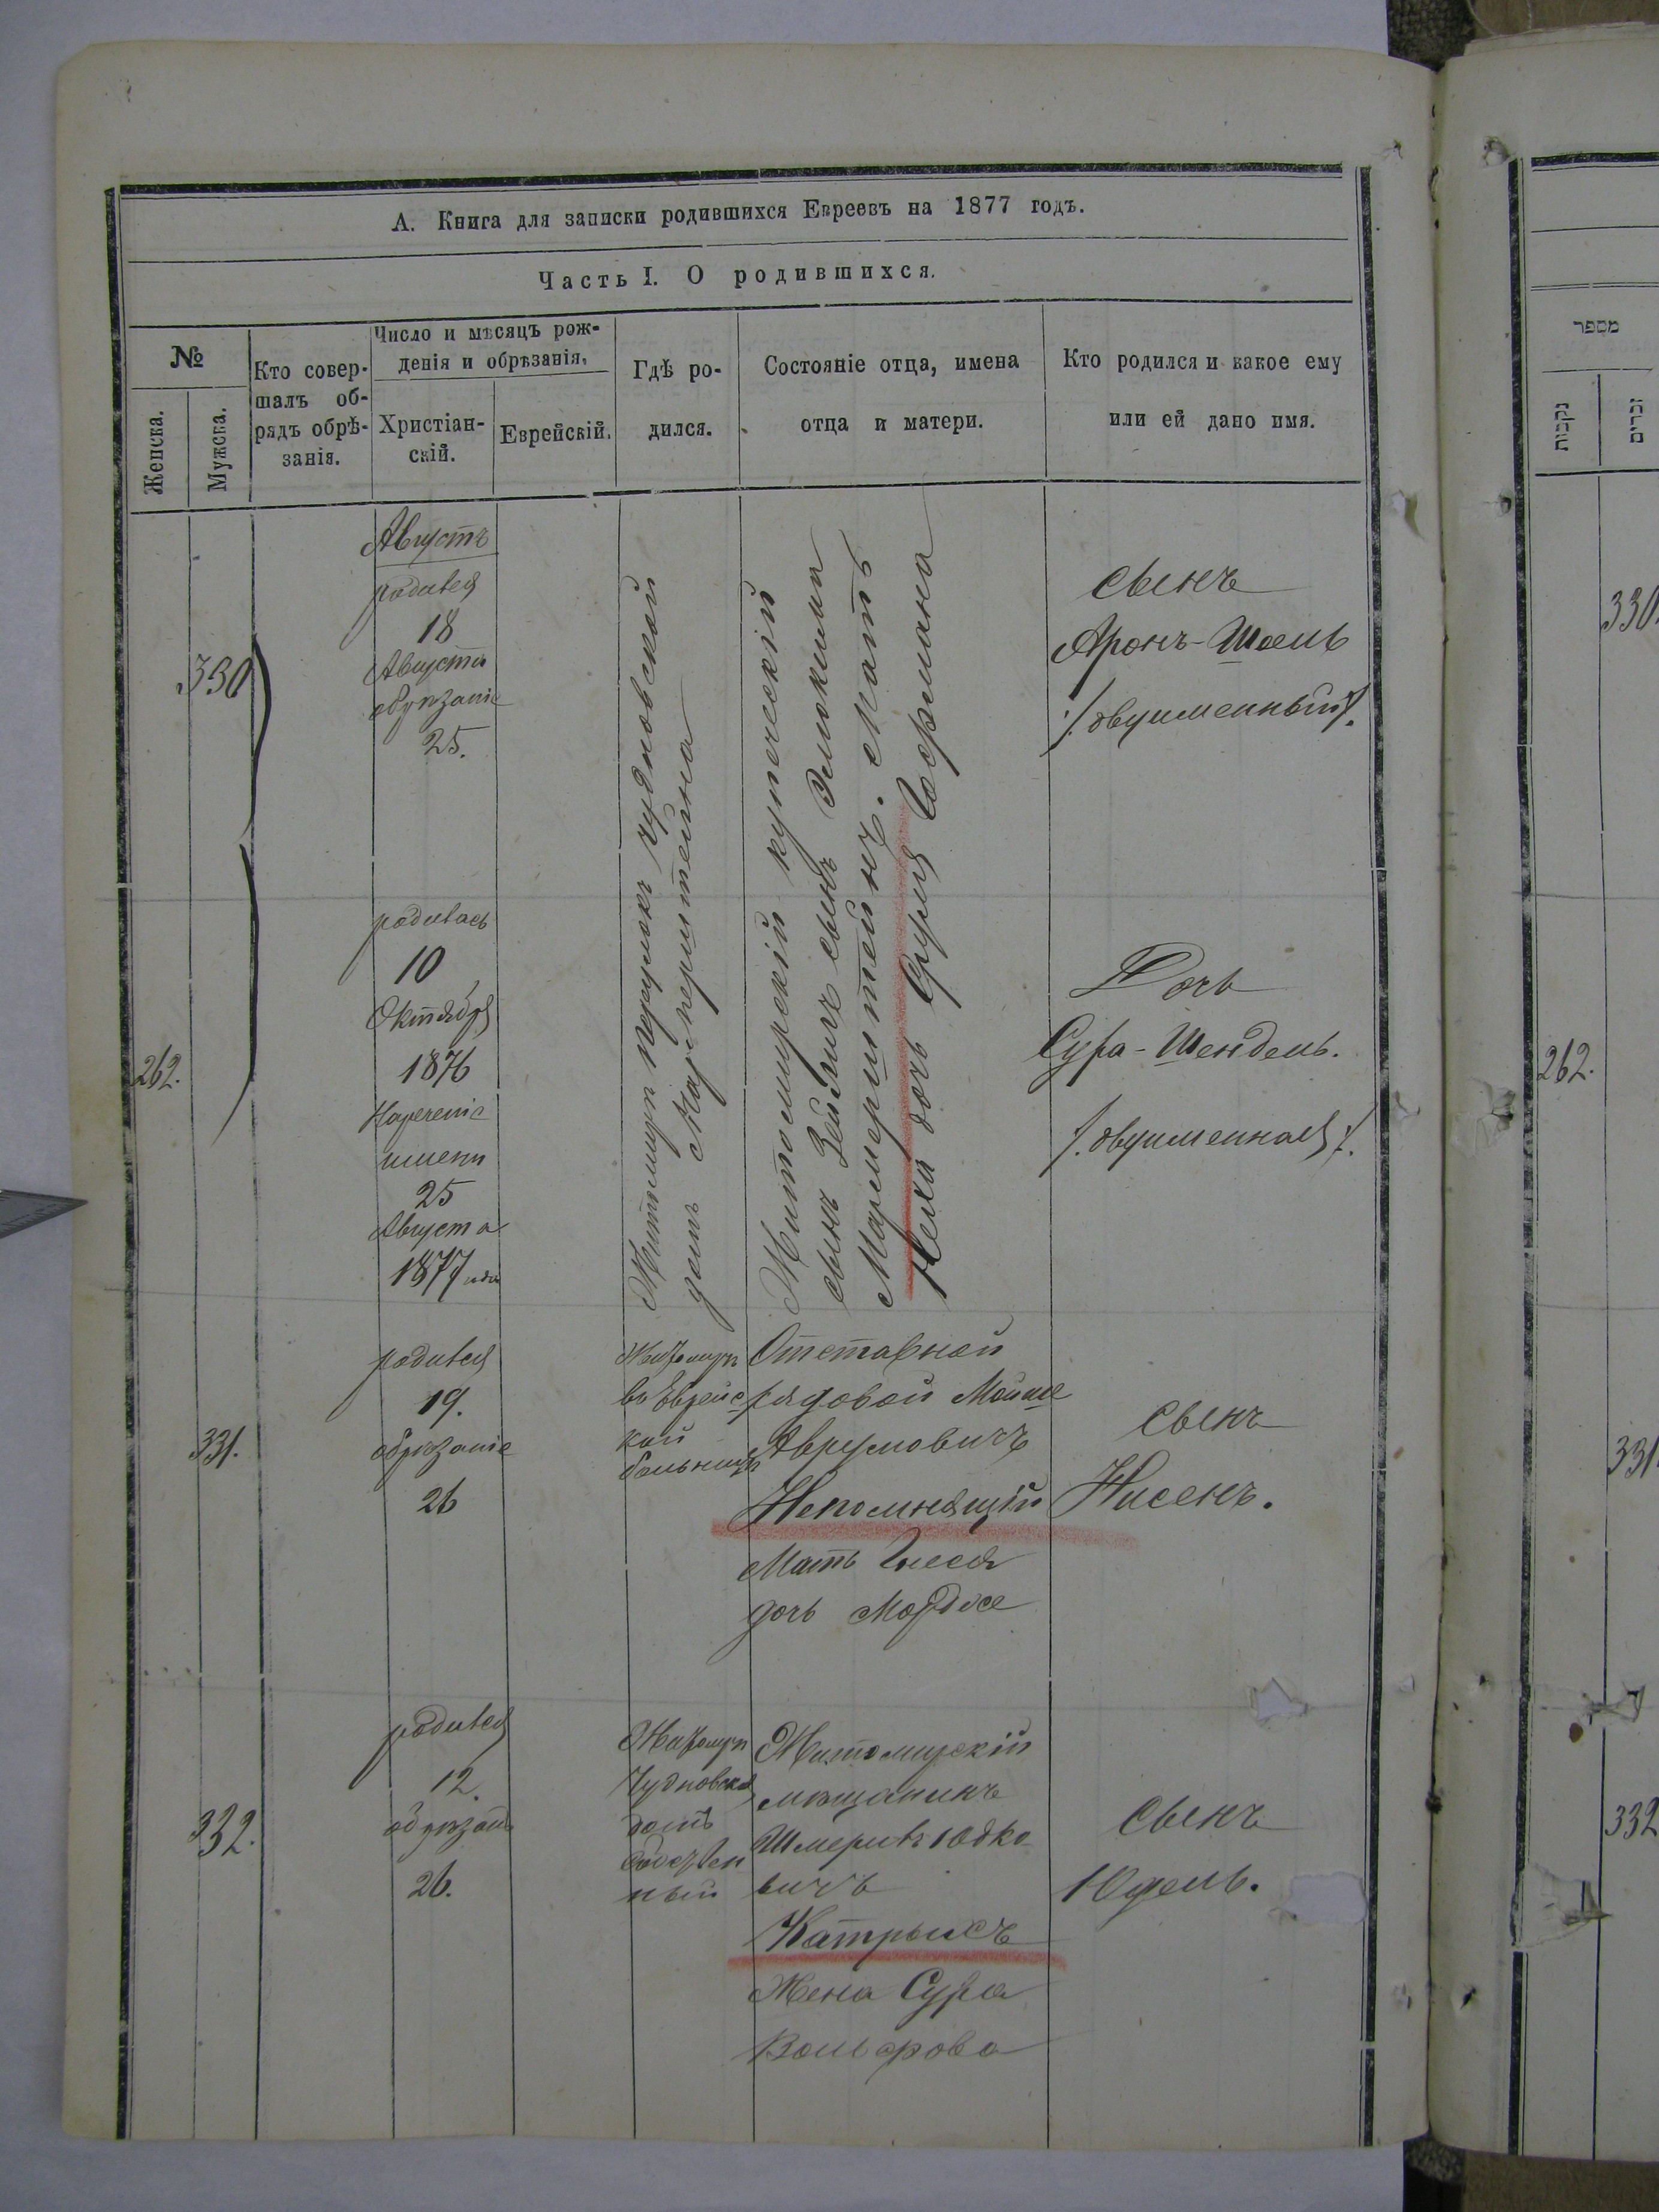 А. Книга для записки родившихся Евреевъ на 1877 годъ.
Часть I. О родившихся.
№
Женска.
Мужска.
Кто совер-
шалъ об-
рядъ обрѣ-
занія.
Число и мѣсяцъ рож-
денія и обрѣзанія.
Христіан-
скій.
Еврейскій.
Гдѣ ро-
дился.
Состояніе отца, имена
отца и матери.
Кто родился и какое ему
или ей дано имя.
330
Августъ
родился
18
Августа
обрѣзаніе
25.
Житомиръ переулокъ чудновской
домъ Маргерштейна
Житомирскій купеческій
сынъ Зейличъ сынъ
Маргерштейнъ. Мать
дочь Фроима
сынъ
Аронъ-Шаель
/: двуименный :/.
262.
родилась
10
Октября
1876
Нареченіе
имени
25
Августа
1877 года
Дочь
Сура-Шендель.
/: двуименная :/.
331.
родился
19.
обрѣзаніе
26
Житомиръ
въ Еврейс
кой
больницѣ
Отставной
рядовой Мойше
Аврумовичъ
Непомнящій
Мать Гнеся
дочь Мордке
сынъ
Нисенъ.
332.
родился
12.
обрѣзані
26.
Житомиръ
Чудновска
домъ
собствен
ный
Житомирскій
мѣщанинъ
Шмериль Юдко
вичъ
Катрычъ
Жена Сура
сынъ
Юдель.
מספר
נקבות
זכרים
330.
262.
331
332